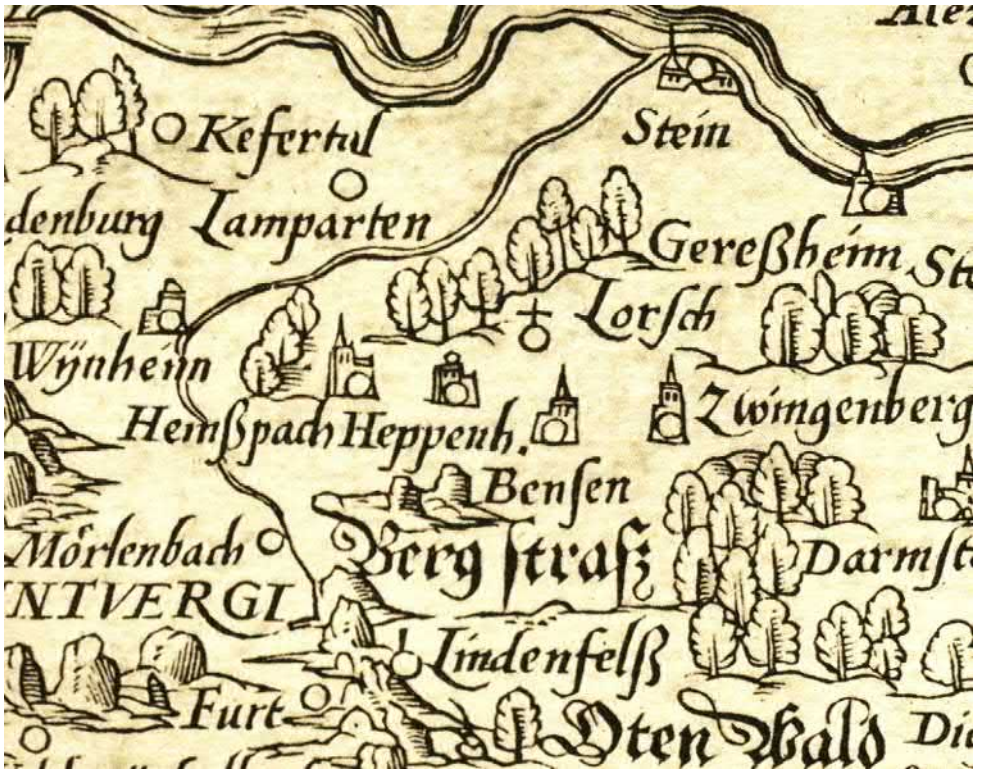 Alez
Kefertal
Stein
denburg
Lamparten
Gereßheim
Ste
Lorsch
Wÿnheim
Zwingenberg
Hemßpach
Heppenh.
Bensen
Mörlenbach
Berg straß
Darmst
NTVERGI
Lindenfelß
Furt
Oten Wald
Die